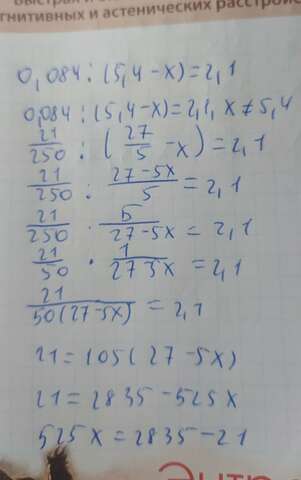 гнитивных и астенических расстройс
0,084:(5,4-x)=2,1
0,084:(5,4-x)=2,1, x≠5,4
21/250 : (27/5 - x) = 2,1
21/250 : (27-5x)/5 = 2,1
21/250 · 5/(27-5x) = 2,1
21/50 · 1/(27 5x) = 2,1
21/(50(27-5x)) = 2,1
21=105(27-5x)
21=2835-525x
525x=2835-21